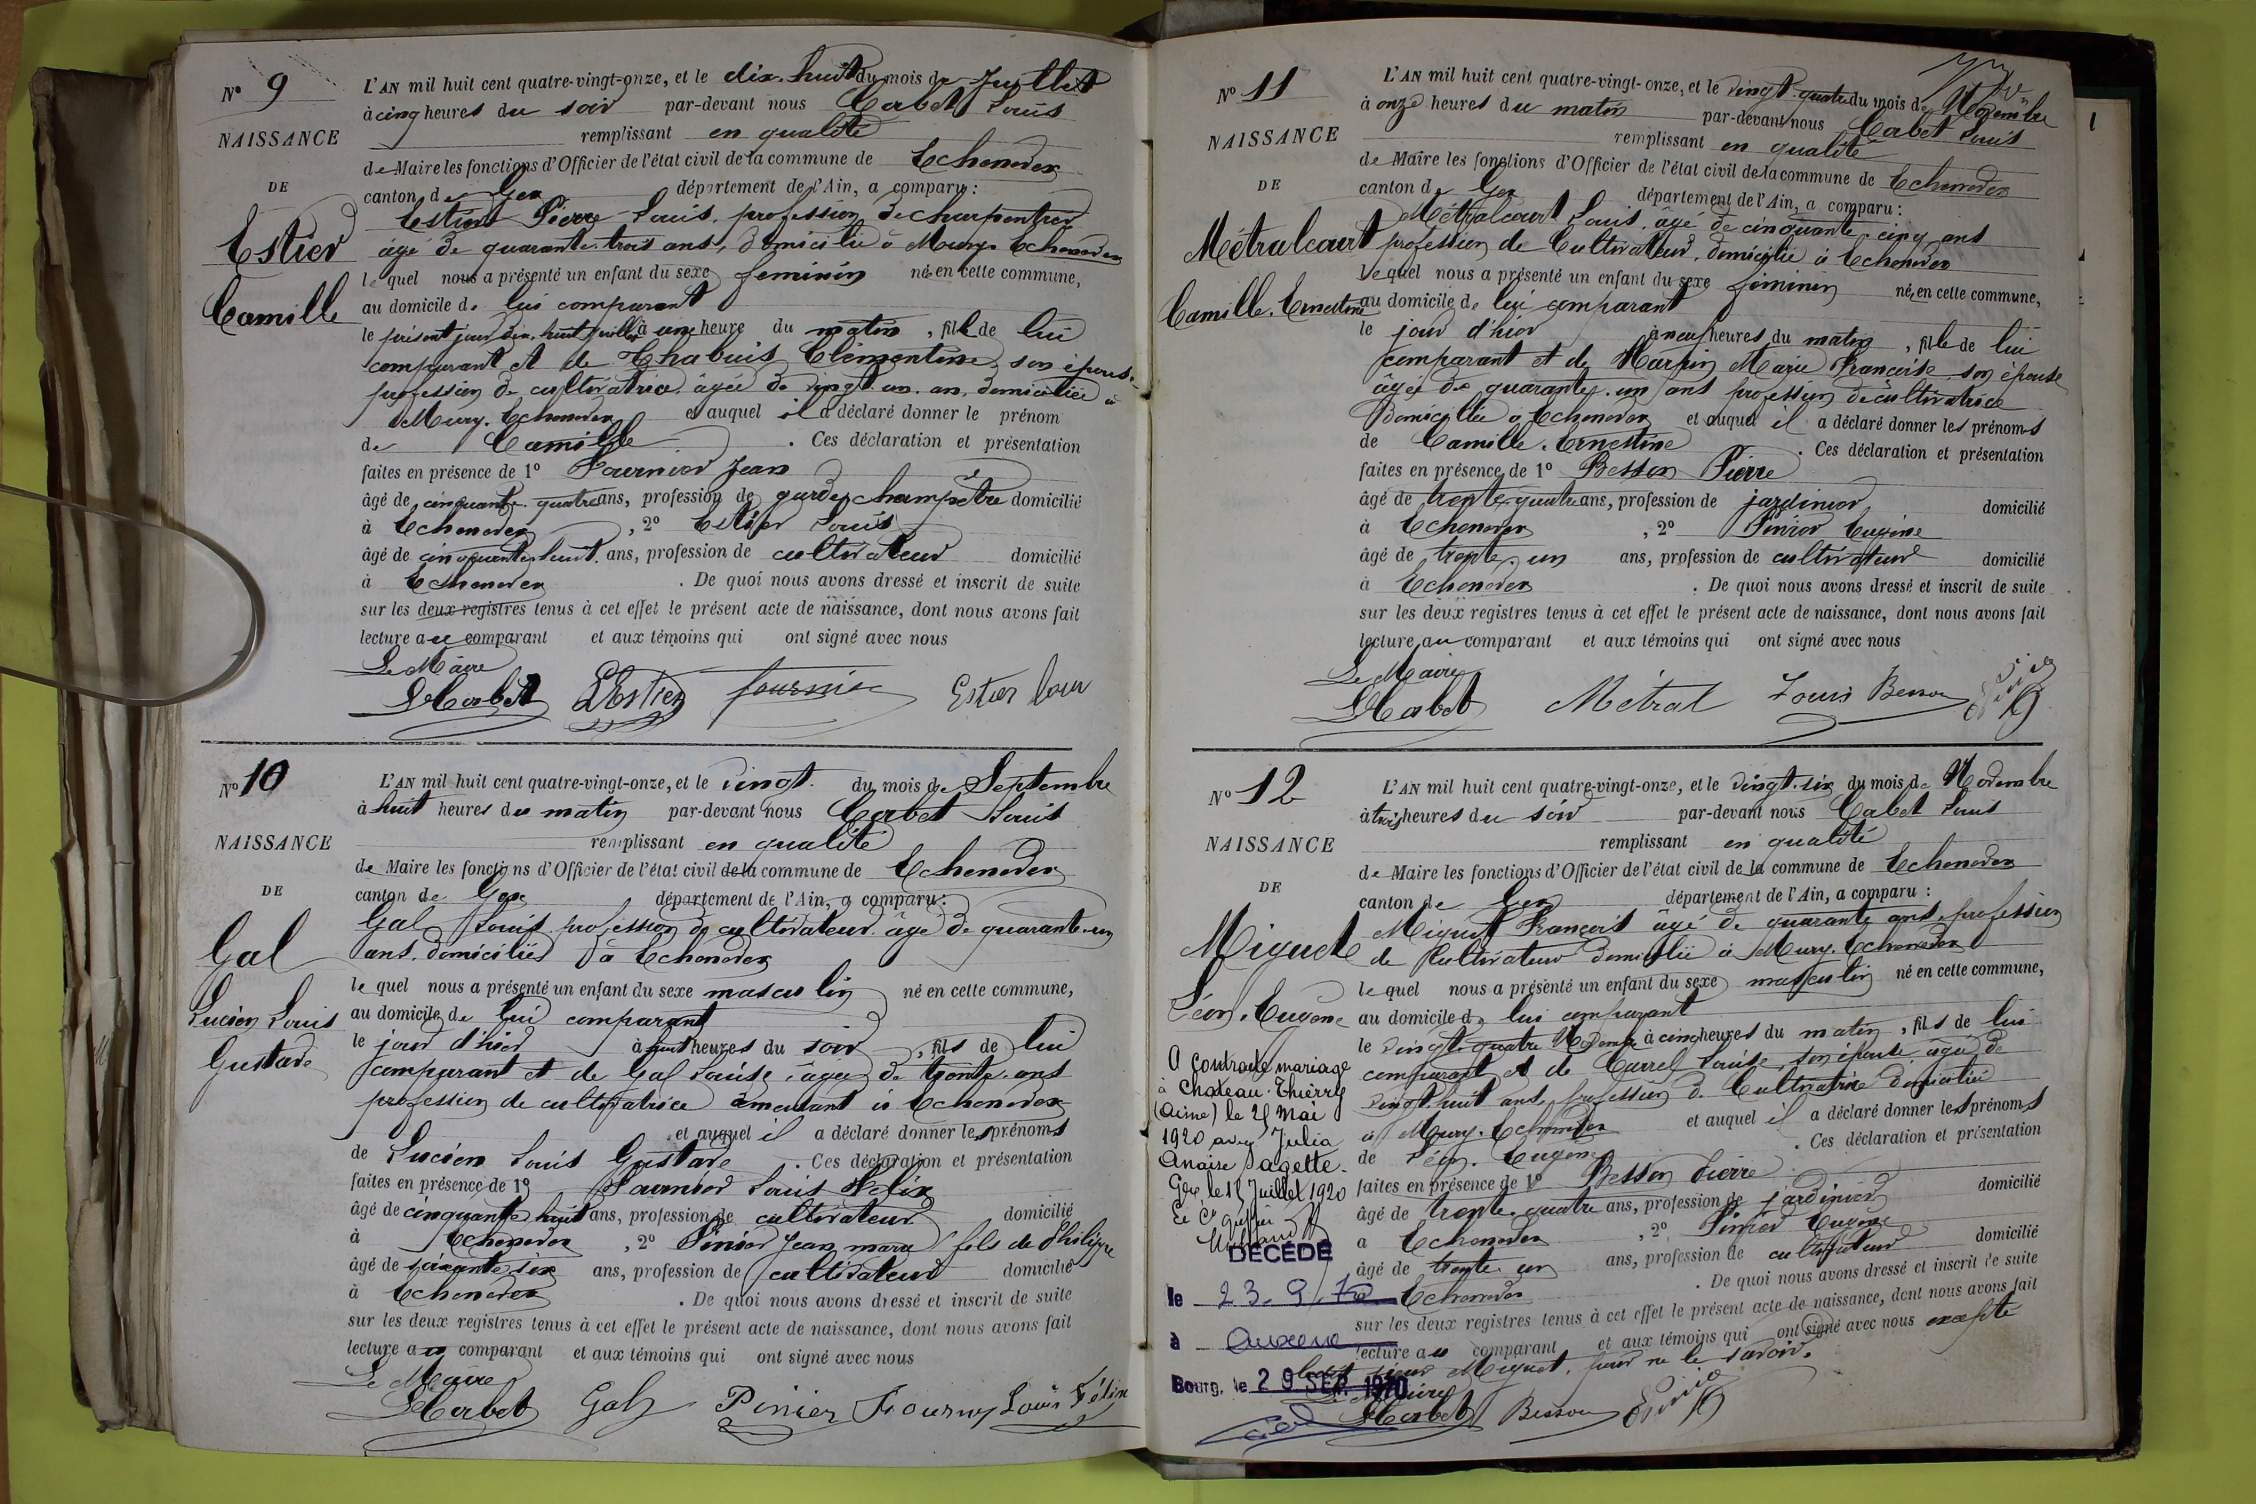 N° 9
NAISSANCE
DE
Estier
Camille
L'AN mil huit cent quatre-vingt-onze, et le dix-huit du mois de Juillet
à cinq heures du soir par-devant nous Corbet Louis
remplissant en qualité
de Maire les fonctions d'Officier de l'état civil de la commune de Echenevex
canton de Gex département de l'Ain, a comparu :
Estier Pierre Louis, profession de charpentier
âgé de quarante-trois ans, domicilié à Mury-Echenevex
lequel nous a présenté un enfant du sexe feminin né en cette commune,
au domicile de lui comparant
le présent jour dix-huit juillet à une heure du matin, fille de lui
comparant et de Chabuis Clémentine, son épouse
profession de cultivatrice âgée de vingt-un ans, domiciliée à
Mury-Echenevex et auquel il a déclaré donner le prénom
de Camille. Ces déclaration et présentation
faites en présence de 1° Fournier Jean
âgé de cinquante-quatre ans, profession de garde champêtre domicilié
à Echenevex, 2° Estier Louis
âgé de cinquante-huit ans, profession de cultivateur domicilié
à Echenevex. De quoi nous avons dressé et inscrit de suite
sur les deux registres tenus à cet effet le présent acte de naissance, dont nous avons fait
lecture au comparant et aux témoins qui ont signé avec nous
Le Maire
L Corbet LEstier fournier Estier Louis
N° 10
NAISSANCE
DE
Gal
Lucien Louis
Gustave
L'AN mil huit cent quatre-vingt-onze, et le vingt du mois de Septembre
à huit heures du matin par-devant nous Corbet Louis
remplissant en qualité
de Maire les fonctions d'Officier de l'état civil de la commune de Echenevex
canton de Gex département de l'Ain, a comparu :
Gal Louis profession de cultivateur âgé de quarante-un
ans, domicilié à Echenevex
lequel nous a présenté un enfant du sexe masculin né en cette commune,
au domicile de lui comparant
le jour d'hier à huit heures du soir, fils de lui
comparant et de Gal Louise, âgée de trente ans
profession de cultivatrice demeurant à Echenevex
et auquel il a déclaré donner les prénoms
de Lucien Louis Gustave. Ces déclaration et présentation
faites en présence de 1° Fournier Louis Félix
âgé de cinquante huit ans, profession de cultivateur domicilié
à Echenevex, 2° Pinier Jean marie fils de Philippe
âgé de soixante six ans, profession de cultivateur domicilié
à Echenevex. De quoi nous avons dressé et inscrit de suite
sur les deux registres tenus à cet effet le présent acte de naissance, dont nous avons fait
lecture au comparant et aux témoins qui ont signé avec nous
Le Maire
L Corbet Gal Pinier Fournier Louis Félix
N° 11
NAISSANCE
DE
Métralcourt
Camille-Ernestine
L'AN mil huit cent quatre-vingt-onze, et le vingt-quatre du mois de Novembre
à onze heures du matin par-devant nous Corbet Louis
remplissant en qualité
de Maire les fonctions d'Officier de l'état civil de la commune de Echenevex
canton de Gex département de l'Ain, a comparu :
Métralcourt Louis, âgé de cinquante-cinq ans
profession de Cultivateur, domicilié à Echenevex
lequel nous a présenté un enfant du sexe féminin né en cette commune,
au domicile de lui comparant
le jour d'hier à neuf heures du matin, fille de lui
comparant et de Marpin Marie Françoise, son épouse
âgée de quarante-un ans profession de cultivatrice
Domiciliée à Echenevex et auquel il a déclaré donner les prénoms
de Camille-Ernestine. Ces déclaration et présentation
faites en présence de 1° Besson Pierre
âgé de trente-quatre ans, profession de jardinier domicilié
à Echenevex, 2° Pinier Eugène
âgé de trente-un ans, profession de cultivateur domicilié
à Echenevex. De quoi nous avons dressé et inscrit de suite
sur les deux registres tenus à cet effet le présent acte de naissance, dont nous avons fait
lecture au comparant et aux témoins qui ont signé avec nous
Le Maire
L Corbet Métral Louis Besson
N° 12
NAISSANCE
DE
Miguet
Léon-Eugène
A contracté mariage
à Chateau-Thierry
(Aisne) le 25 Mai
1920 avec Julia
Anaïse Pagette.
Gex, le 15 Juillet 1920
Le Cs greffier
DÉCÉDÉ
le 23.9.70
à Auxerre
Bourg, le 29 SEP. 1970
L'AN mil huit cent quatre-vingt-onze, et le vingt-six du mois de Novembre
à trois heures du soir par-devant nous Corbet Louis
remplissant en qualité
de Maire les fonctions d'Officier de l'état civil de la commune de Echenevex
canton de Gex département de l'Ain, a comparu :
Miguet François âgé de quarante ans, profession
de Cultivateur domicilié à Mury-Echenevex
lequel nous a présenté un enfant du sexe masculin né en cette commune,
au domicile de lui comparant
le vingt-quatre Novembre à cinq heures du matin, fils de lui
comparant et de Carrel Louise, son épouse âgée de
vingt-huit ans, profession de Cultivatrice domiciliée
à Mury-Echenevex et auquel il a déclaré donner les prénoms
de Léon-Eugène. Ces déclaration et présentation
faites en présence de 1° Besson Pierre
âgé de trente-quatre ans, profession de jardinier domicilié
à Echenevex, 2° Pinier Eugène
âgé de trente-un ans, profession de cultivateur domicilié
à Echenevex. De quoi nous avons dressé et inscrit de suite
sur les deux registres tenus à cet effet le présent acte de naissance, dont nous avons fait
lecture au comparant et aux témoins qui ont signé avec nous excepté
ledit sieur Miguet, pour ne le savoir.
Le Maire
L Corbet Besson